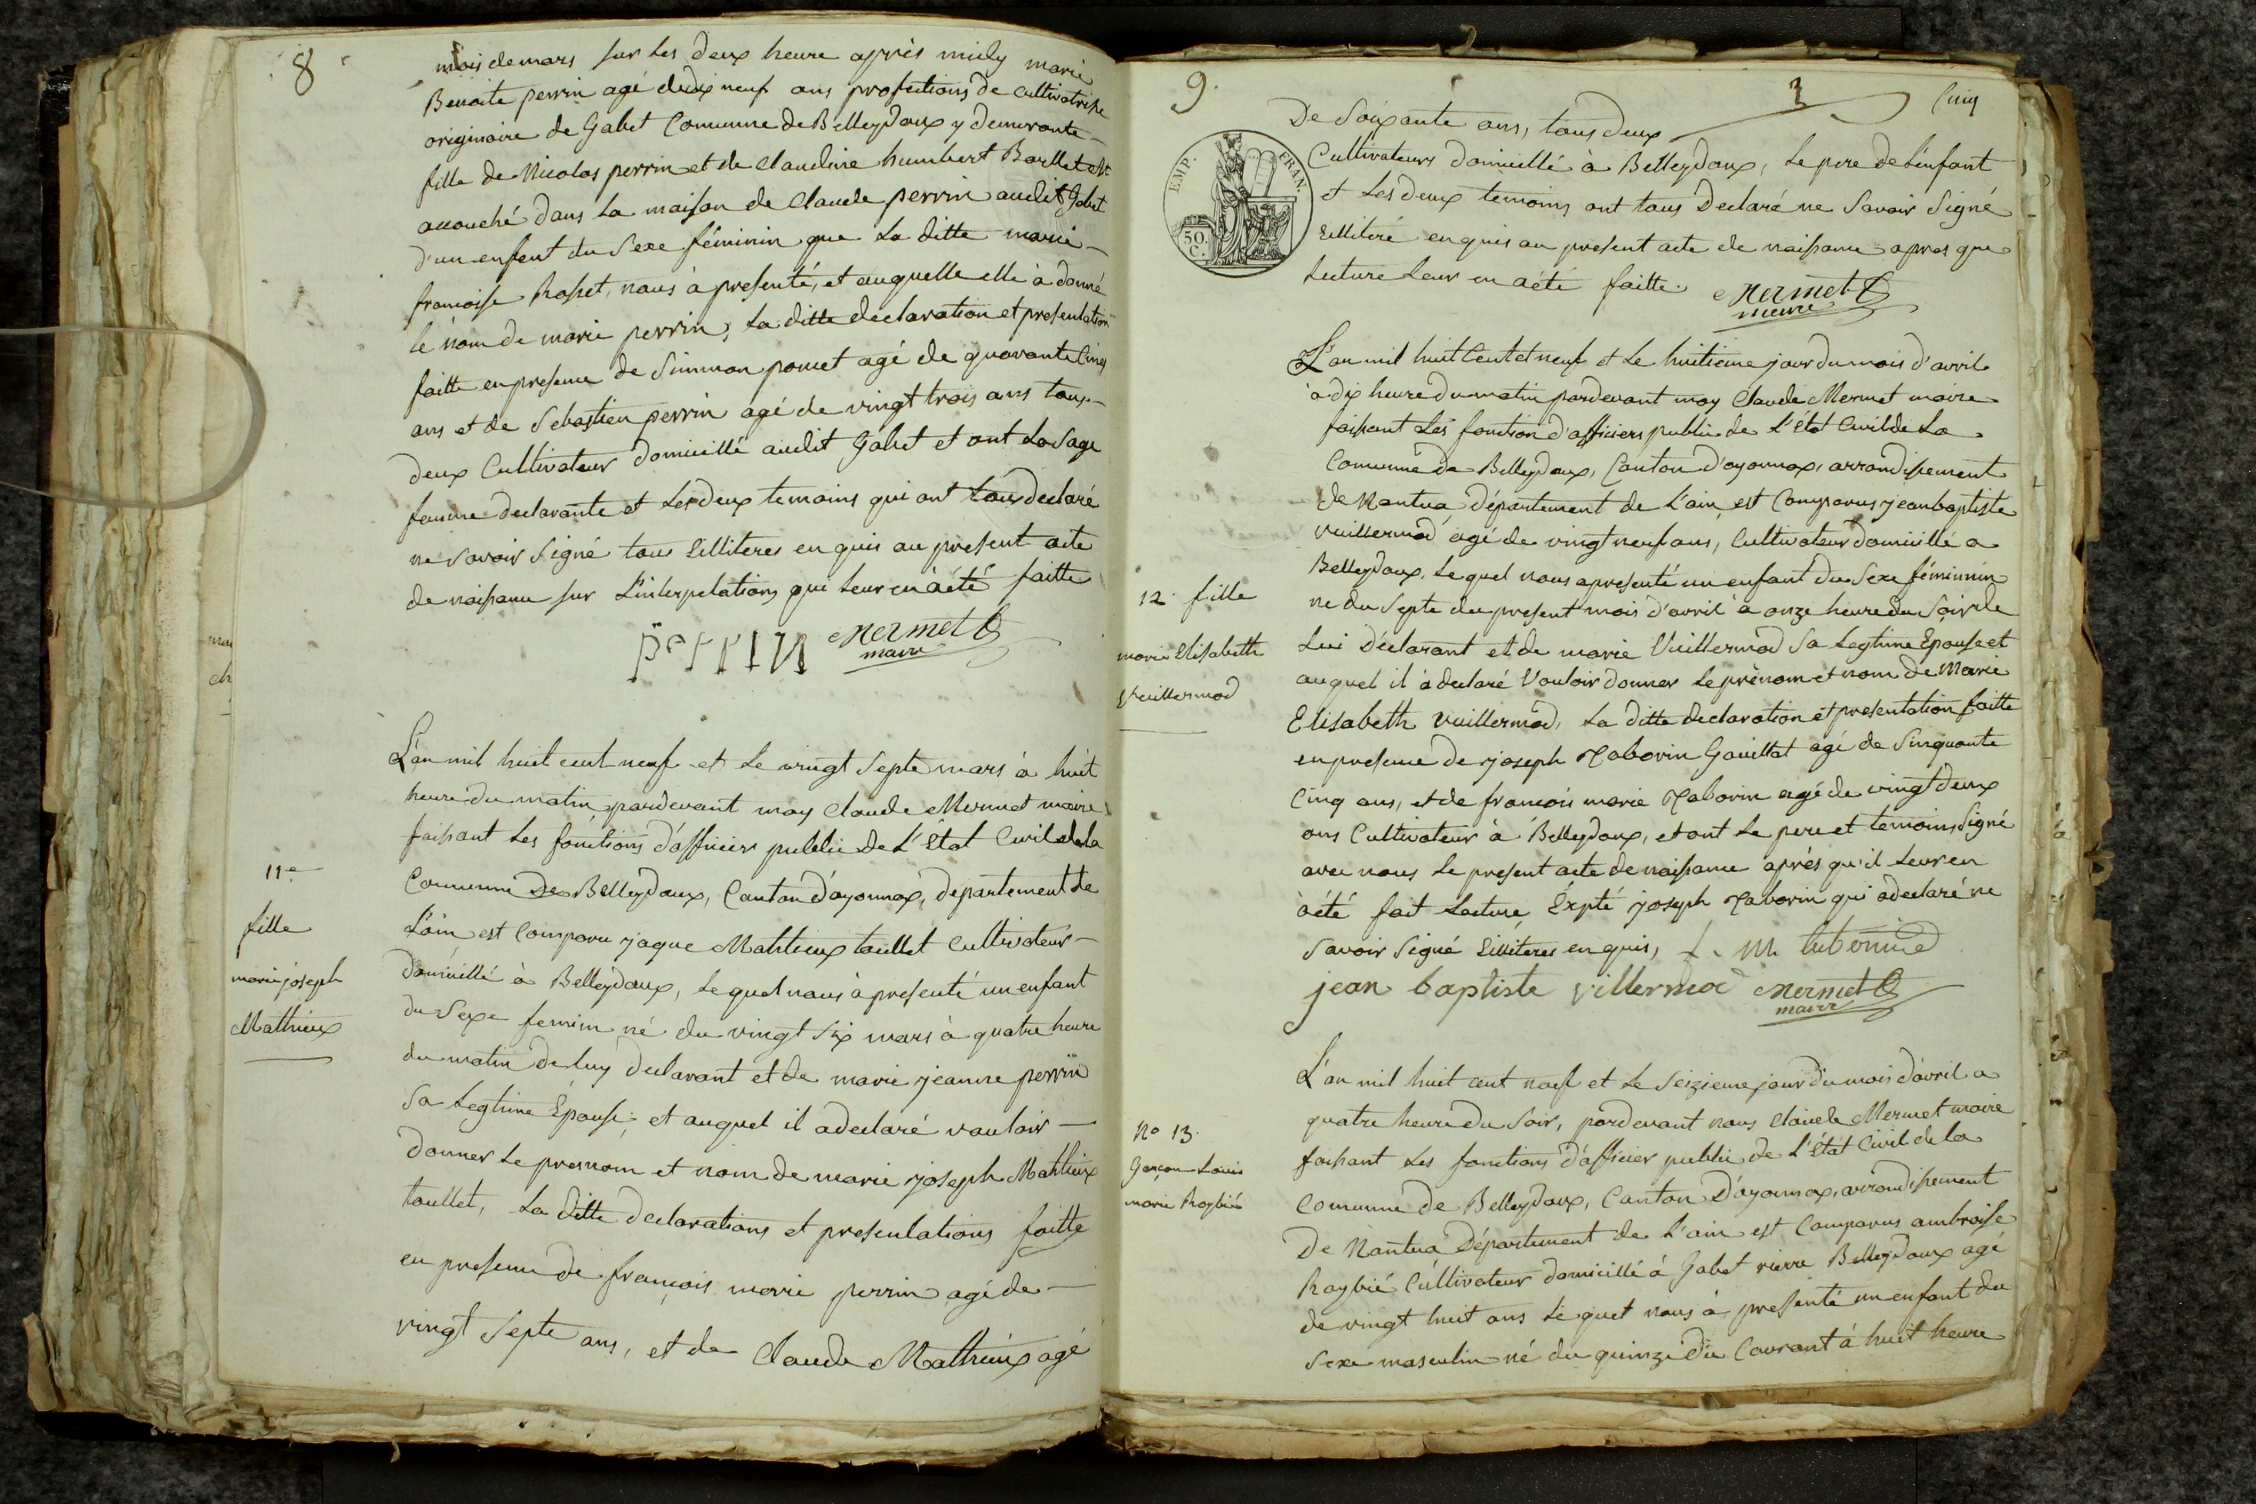 8
mois de mars sur les deux heure après midy marie
Benoite perrin agé de dix neuf ans profections de Cultivatrise
originaire de Gabet Commune de Belleydoux y demeurante
fille de Nicolas perrin et de Claudine humbert Barllet est
accouché dans la maison de Claude perrin audit Gobet
d'un enfent du Sexe féminin que la ditte marie
francoise Rosset, nous à presenté, et auquelle elle à donné
le nom de marie perrin, la ditte déclaration et presentation
faitte en presence de Simmon poncet agé de quarante Cinq
ans et de Sebastien perrin agé de vingt trois ans tous
deux Cultivateur domicillé audit Gabet et ont la Sage
femme declarante et les deux temoins qui ont tous declaré
ne Savoir Signé tous illiteres en quis au present acte
de naissance sur l'interpelations qui leur en à été faitte
PerriN Mermet
maire
11e
fille
marie joseph
Mathieux
L'an mil huit cent neuf et le vingt Septe mars à huit
heure du matin, pardevant moy Claude Mermet maire
faisant les fonctions d'afficier public de L'état Civil de la
Commune De Belleydoux, Canton d'ayonnax, departement de
L'ain est Comparu jaque Mathieux taullet Cultivateur
domicillé à Belleydoux, lequel nous à presenté un enfant
du Sexe feminin né du vingt Six mars à quatre heure
du matin de luy declarant et de marie jeanne perrin
Sa Legtime Épouse, et auquel il a declaré vouloir
donner le prenom et nom de marie joseph Mathieux
taullet, La ditte declarations et presentations faitte
en presence de françois marie perrin agé de
vingt Septe ans, et de Claude Mathieux agé
9. 3 Cinq
De Soixante ans, tous deux
EMP. FRAN.
50. C.
Cultivateurs domicillé à Belleydoux, le pere de L'enfant
et Les deux temoins ont tous Declaré ne Savoir Signé
illiteré enquis au present acte de naissance apres que
Lecture Leur en a été faitte. Mermet
maire
L'an mil huit Cent et neuf et le huitieme jour du mois d'avril
à dix heure du matin pardevant moy Claude Mermet maire
faisant Les fonction d'afficiers public de L'état Civil de La
Commune de Belleydoux, Canton d'ayonnax, arrondisement
de Nantua département de L'ain, est Comparus jean baptiste
Vuillermod agé de vingt neuf ans, Cultivateur domicillé a
Belleydoux, lequel nous a presenté un enfant du Sexe féminnin
né du Septe du present mois d'avril à onze heure du Soir de
Lui Déclarant et de marie Vuillermod Sa Legtime Epouse et
auquel il à declaré Vouloir donner le prènom et nom de Marie
Elisabeth Vuillermod, La ditte declaration et presentation faitte
en presence de joseph Taborin Gouillat agé de Sinquante
Cinq ans, et de francois marie Taborin agé de vingt deux
ans Cultivateur à Belleydoux, et ont le pere et temoins Signé
avec nous le present acte de naissance après qu'il leur en
à été fait Lecture, Éxpté joseph Taborin qui a declaré ne
Savoir Signé illiteres en quis, f. m tabourin
jean baptiste villermod Mermet
maire
12. fille
marie Elisabeth
Vuillermod
L'an mil huit cent neuf et le Seizieme jour du mois d'avril a
quatre heure du Soir, pardevant nous Claude Mermet maire
faisant Les fonctions d'afficier public de L'état Civil de la
Commune de Belleydoux, Canton D'ayonnax, arrondisement
De Nantua Département de L'ain est Comparus ambroise
Raybié Cultivateur domicillé à Gabet rierre Belleydoux agé
de vingt huit ans le quel nous à presenté un enfant du
Sexe masculin né du quinze du Courant à huit heure
No 13.
Garçon Louis
marie Raybié